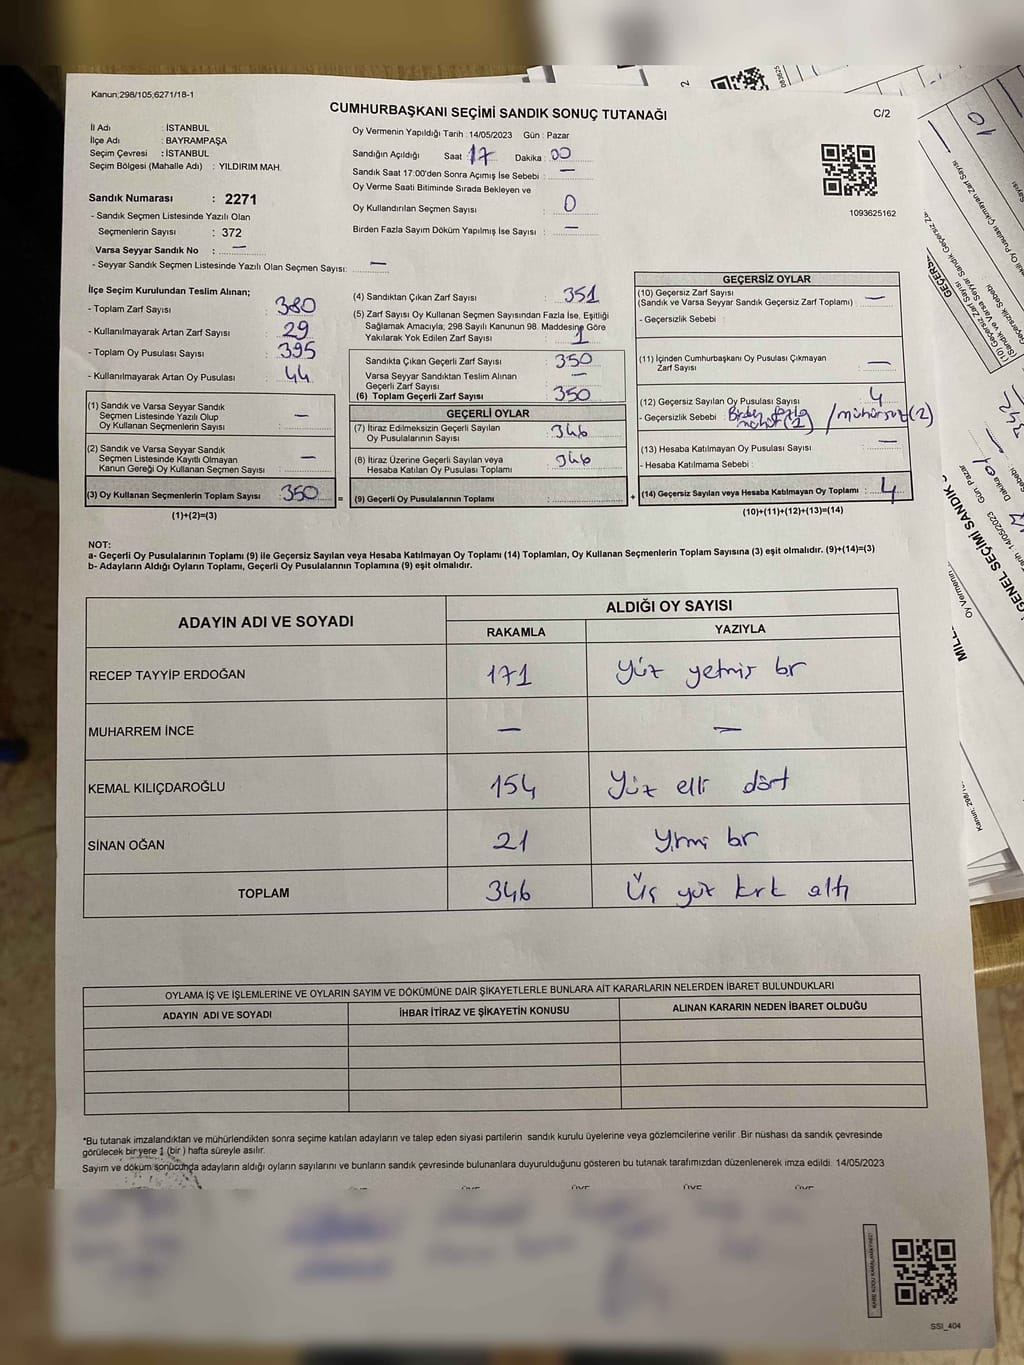 Kanun:298/105;6271/18-1
CUMHURBAŞKANI SEÇİMİ SANDIK SONUÇ TUTANAĞI
C/2
İl Adı : İSTANBUL
İlçe Adı : BAYRAMPAŞA
Seçim Çevresi : İSTANBUL
Seçim Bölgesi (Mahalle Adı) : YILDIRIM MAH.
Sandık Numarası : 2271
- Sandık Seçmen Listesinde Yazılı Olan
Seçmenlerin Sayısı : 372
Varsa Seyyar Sandık No : —
- Seyyar Sandık Seçmen Listesinde Yazılı Olan Seçmen Sayısı: —
Oy Vermenin Yapıldığı Tarih : 14/05/2023 Gün : Pazar
Sandığın Açıldığı Saat 17 Dakika : 00
Sandık Saat 17:00'den Sonra Açımış İse Sebebi : —
Oy Verme Saati Bitiminde Sırada Bekleyen ve
Oy Kullandırılan Seçmen Sayısı : 0
Birden Fazla Sayım Döküm Yapılmış İse Sayısı : —
1093625162
İlçe Seçim Kurulundan Teslim Alınan;
- Toplam Zarf Sayısı : 380
- Kullanılmayarak Artan Zarf Sayısı : 29
- Toplam Oy Pusulası Sayısı : 395
- Kullanılmayarak Artan Oy Pusulası : 44
(1) Sandık ve Varsa Seyyar Sandık
Seçmen Listesinde Yazılı Olup
Oy Kullanan Seçmenlerin Sayısı : —
(2) Sandık ve Varsa Seyyar Sandık
Seçmen Listesinde Kayıtlı Olmayan
Kanun Gereği Oy Kullanan Seçmen Sayısı : —
(3) Oy Kullanan Seçmenlerin Toplam Sayısı : 350
(1)+(2)=(3)
(4) Sandıktan Çıkan Zarf Sayısı : 351
(5) Zarf Sayısı Oy Kullanan Seçmen Sayısından Fazla İse, Eşitliği
Sağlamak Amacıyla; 298 Sayılı Kanunun 98. Maddesine Göre
Yakılarak Yok Edilen Zarf Sayısı : 1
Sandıkta Çıkan Geçerli Zarf Sayısı : 350
Varsa Seyyar Sandıktan Teslim Alınan
Geçerli Zarf Sayısı : —
(6) Toplam Geçerli Zarf Sayısı : 350
GEÇERLİ OYLAR
(7) İtiraz Edilmeksizin Geçerli Sayılan
Oy Pusulalarının Sayısı : 346
(8) İtiraz Üzerine Geçerli Sayılan veya
Hesaba Katılan Oy Pusulası Toplamı : 346
= (9) Geçerli Oy Pusulalarının Toplamı :
GEÇERSİZ OYLAR
(10) Geçersiz Zarf Sayısı
(Sandık ve Varsa Seyyar Sandık Geçersiz Zarf Toplamı) : —
- Geçersizlik Sebebi :
(11) İçinden Cumhurbaşkanı Oy Pusulası Çıkmayan
Zarf Sayısı : —
(12) Geçersiz Sayılan Oy Pusulası Sayısı : 4
- Geçersizlik Sebebi : Birden fazla mühür(2) / mühürsüz(2)
(13) Hesaba Katılmayan Oy Pusulası Sayısı : —
- Hesaba Katılmama Sebebi :
+ (14) Geçersiz Sayılan veya Hesaba Katılmayan Oy Toplamı : 4
(10)+(11)+(12)+(13)=(14)
NOT:
a- Geçerli Oy Pusulalarının Toplamı (9) ile Geçersiz Sayılan veya Hesaba Katılmayan Oy Toplamı (14) Toplamları, Oy Kullanan Seçmenlerin Toplam Sayısına (3) eşit olmalıdır. (9)+(14)=(3)
b- Adayların Aldığı Oyların Toplamı, Geçerli Oy Pusulalarının Toplamına (9) eşit olmalıdır.
ADAYIN ADI VE SOYADI
ALDIĞI OY SAYISI
RAKAMLA YAZIYLA
RECEP TAYYİP ERDOĞAN 171 Yüz yetmiş bir
MUHARREM İNCE — —
KEMAL KILIÇDAROĞLU 154 Yüz elli dört
SİNAN OĞAN 21 Yirmi bir
TOPLAM 346 Üç yüz kırk altı
OYLAMA İŞ VE İŞLEMLERİNE VE OYLARIN SAYIM VE DÖKÜMÜNE DAİR ŞİKAYETLERLE BUNLARA AİT KARARLARIN NELERDEN İBARET BULUNDUKLARI
ADAYIN ADI VE SOYADI İHBAR İTİRAZ VE ŞİKAYETİN KONUSU ALINAN KARARIN NEDEN İBARET OLDUĞU
*Bu tutanak imzalandıktan ve mühürlendikten sonra seçime katılan adayların ve talep eden siyasi partilerin sandık kurulu üyelerine veya gözlemcilerine verilir. Bir nüshası da sandık çevresinde
görülecek bir yere 1 (bir ) hafta süreyle asılır.
Sayım ve döküm sonucunda adayların aldığı oyların sayılarını ve bunların sandık çevresinde bulunanlara duyurulduğunu gösteren bu tutanak tarafımızdan düzenlenerek imza edildi. 14/05/2023
SSI_404